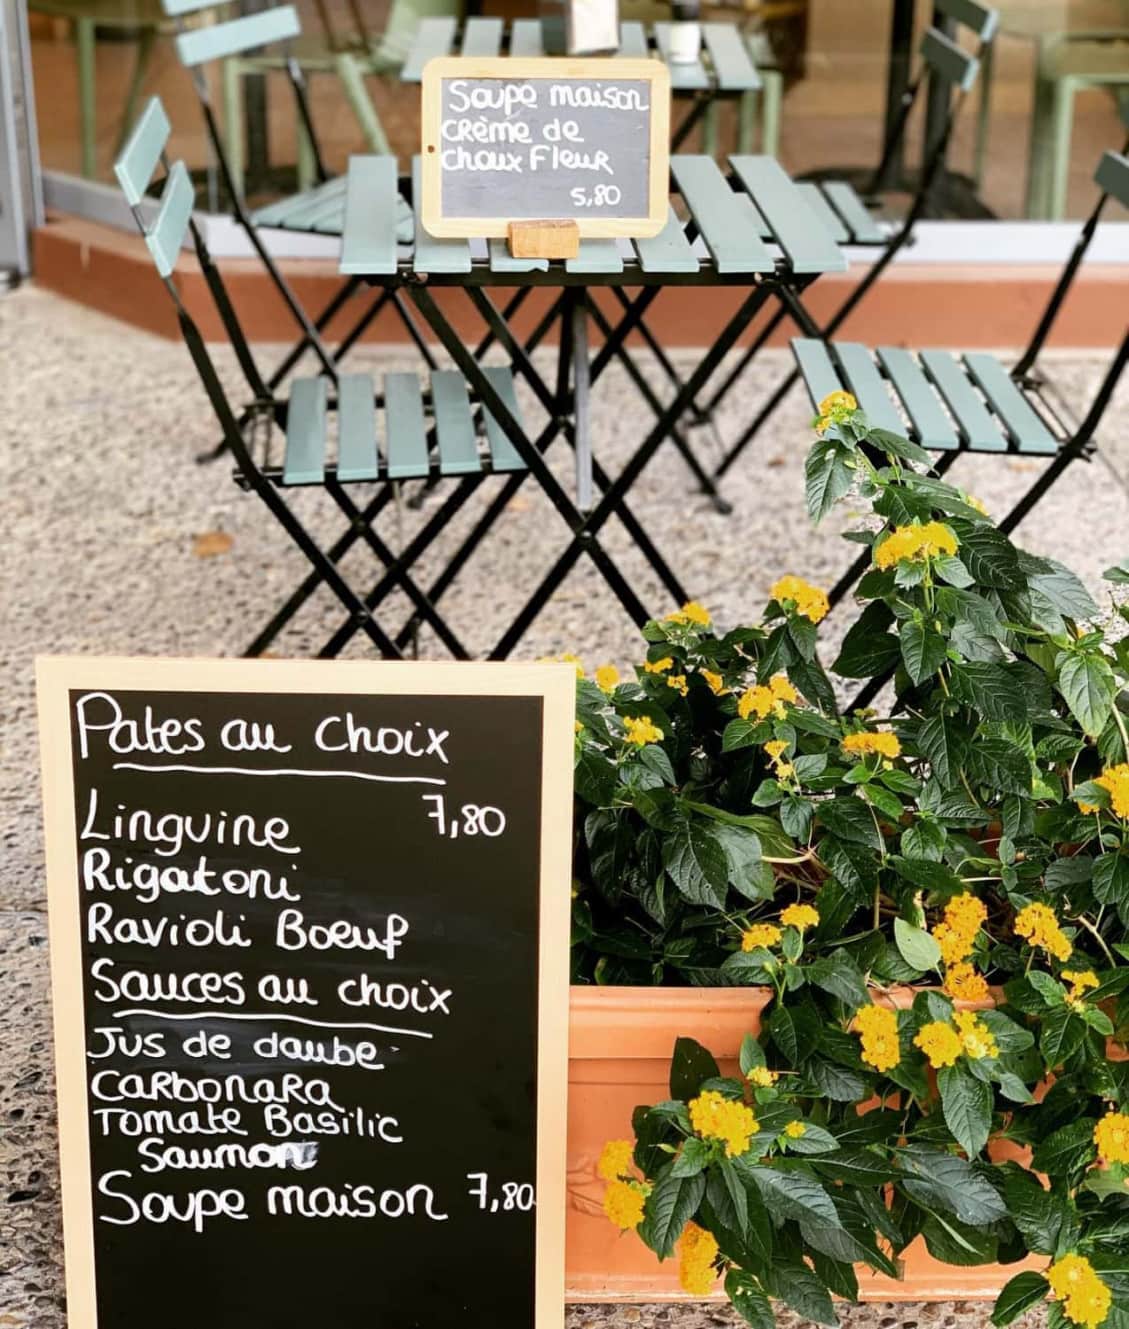 Soupe maison
Crème de
choux Fleur
5,80
Pates au choix
Linguine 7,80
Rigatoni
Ravioli Bœuf
Sauces au choix
Jus de daube
Carbonara
Tomate Basilic
Saumon
Soupe maison 7,80